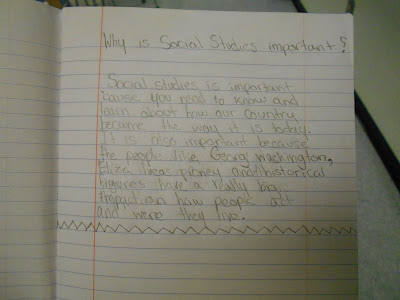 Why is Social Studies important?
Social studies is important
cause you need to know and
learn about how our country
became the way it is today.
It is also important because
the people like Georg washington,
Eliza lucas picney and historical
figures have a really big
impact on how people act
and were they live.